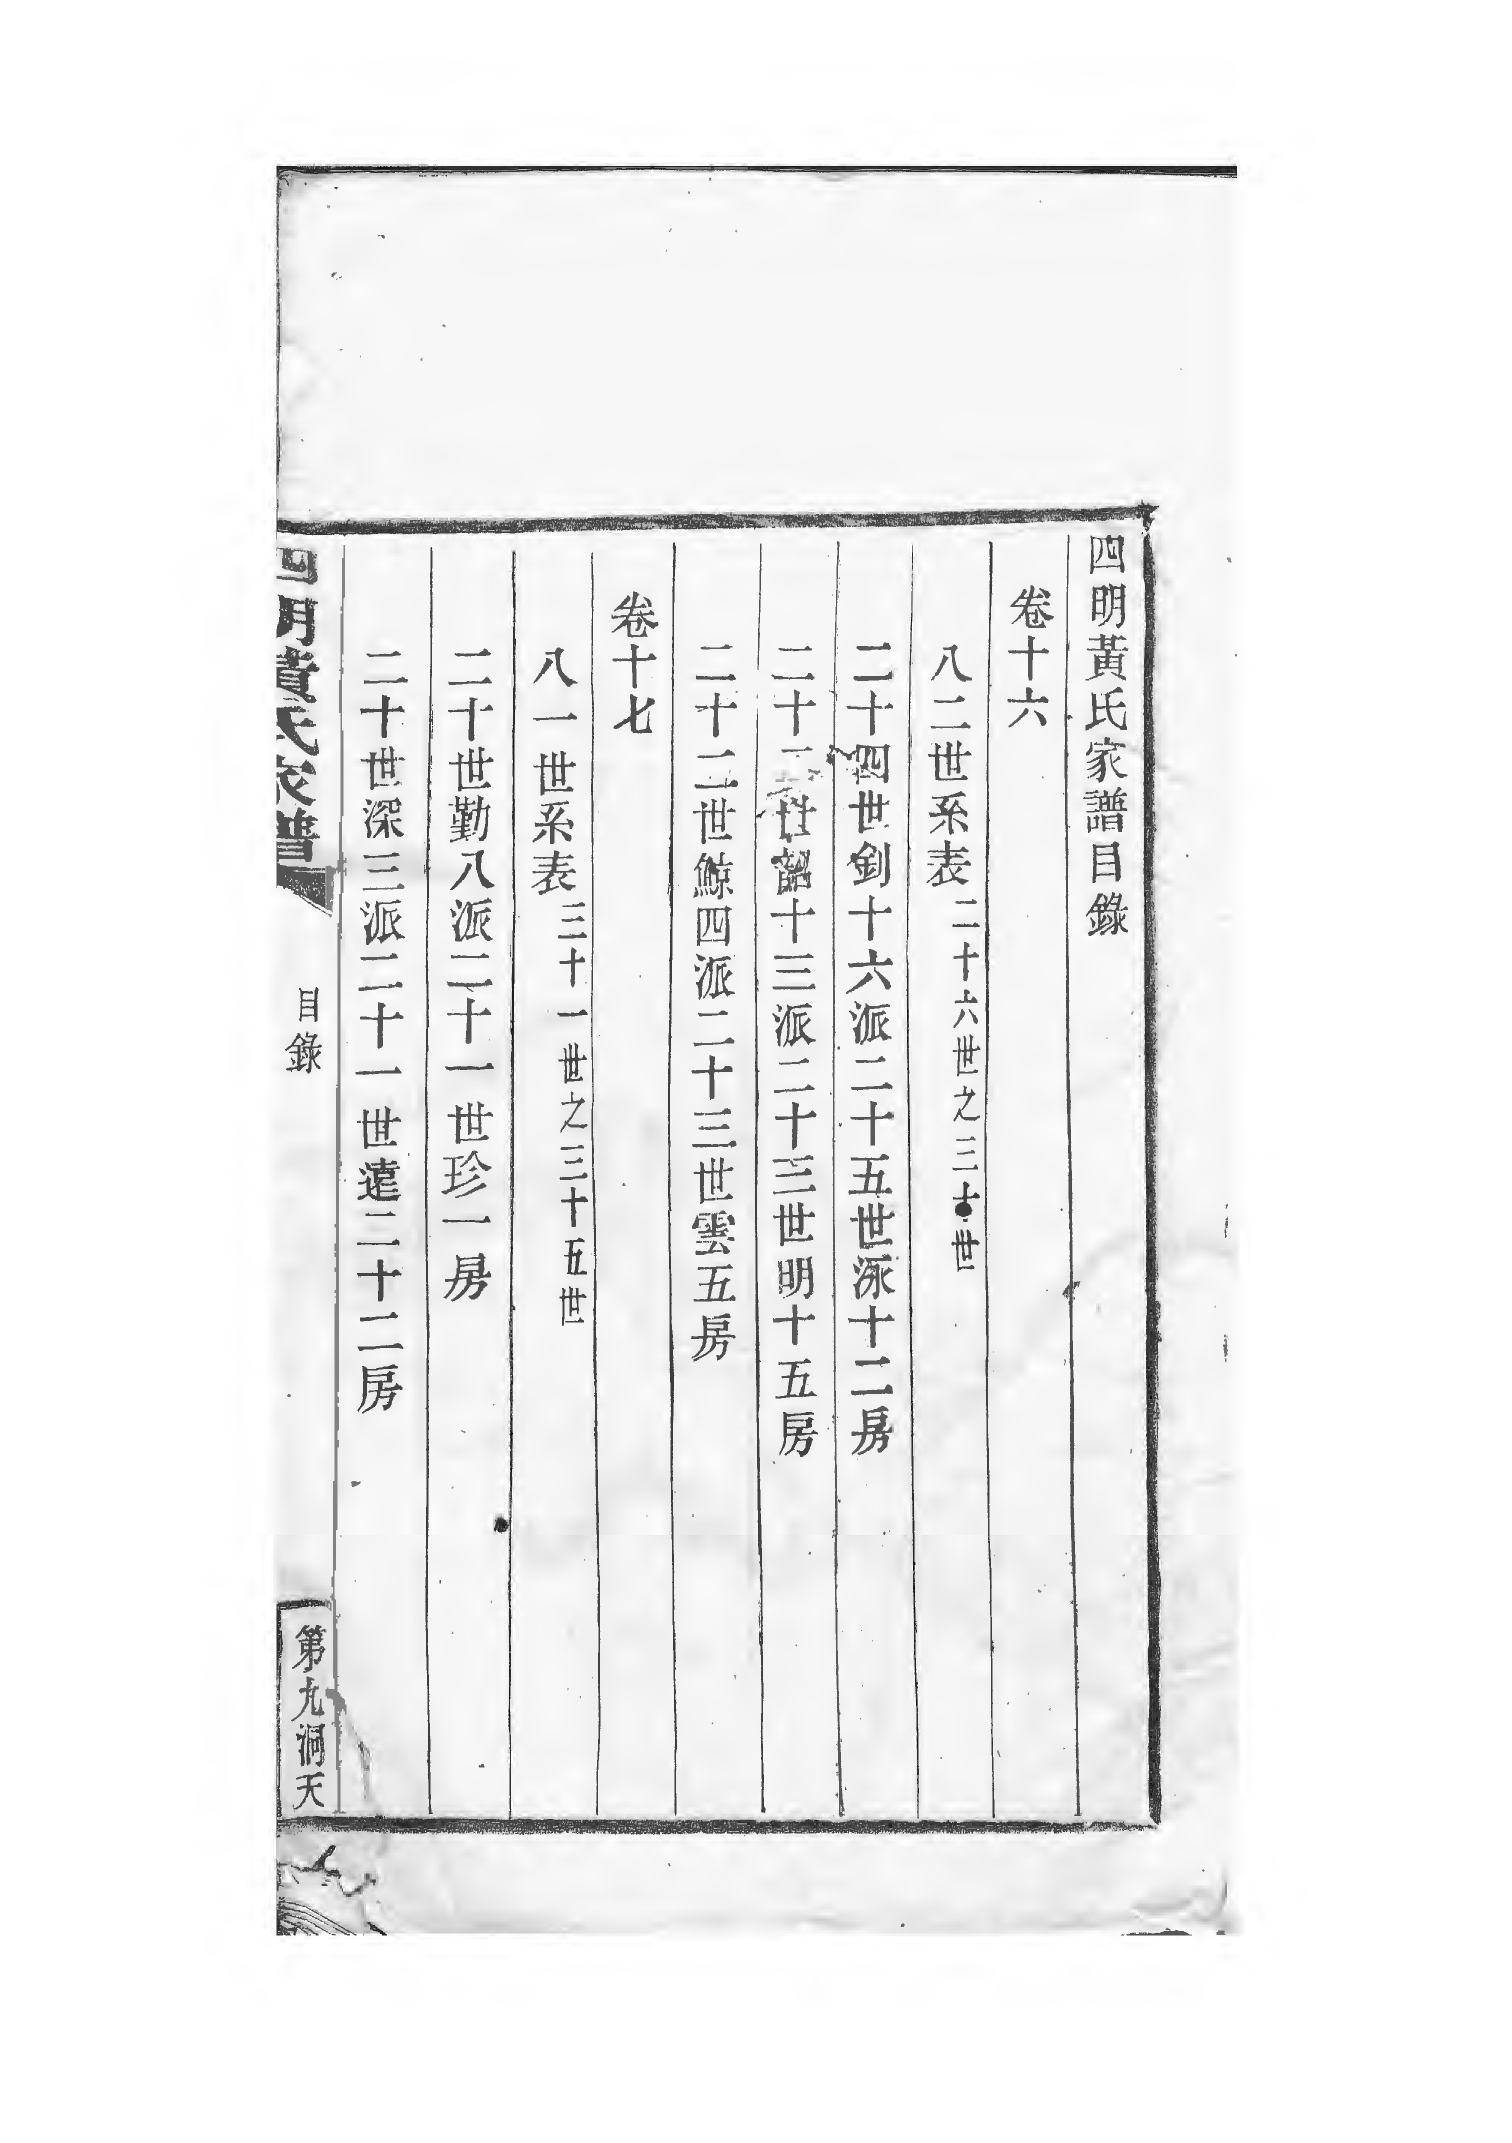 四明黃氏家譜目錄
卷十六
八二世系表二十六世之三十世
二十四世釗十六派二十五世泳十二房
二十二世韶十三派二十三世明十五房
二十二世鯨四派二十三世雲五房
卷十七
八一世系表三十一世之三十五世
二十世勤八派二十一世珍一房
二十世深三派二十一世遠二十二房
四明黃氏家譜
目錄
第九洞天